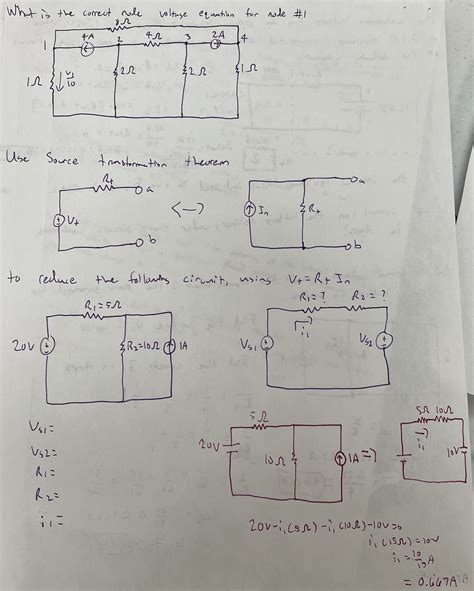 What is the correct node voltage equation for node #1
8Ω
1 4A 2 4Ω 3 2A 4
1Ω V1/10 2Ω 2Ω 1Ω
Use Source transformation theorem
Rt a a
Vt <-> In Rt
b b
to reduce the following circuit, using Vt = Rt In
R1=5Ω R1=? R2=?
i1
20V R2=10Ω 1A Vs1 Vs2
Vs1=
Vs2=
R1=
R2=
i1=
5Ω 5Ω 10Ω
20V 10Ω 1A =? i1 10V
20V-i1(5Ω)-i1(10Ω)-10V=0
i1(15Ω)=10V
i1=10/15A
=0.667A